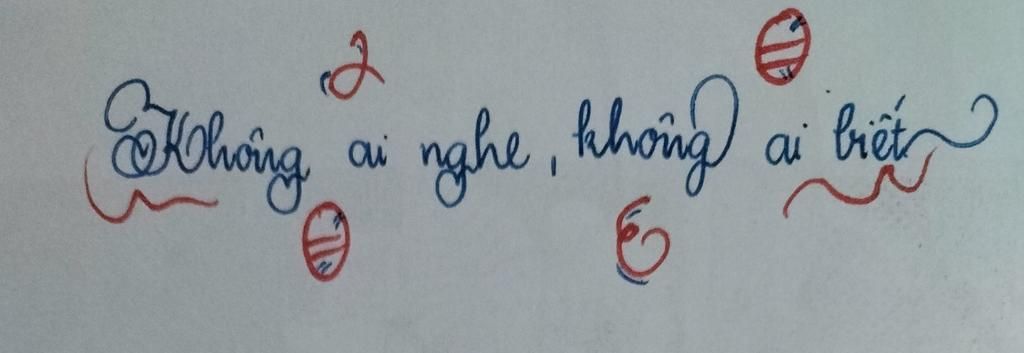 Không ai nghe, không ai biết